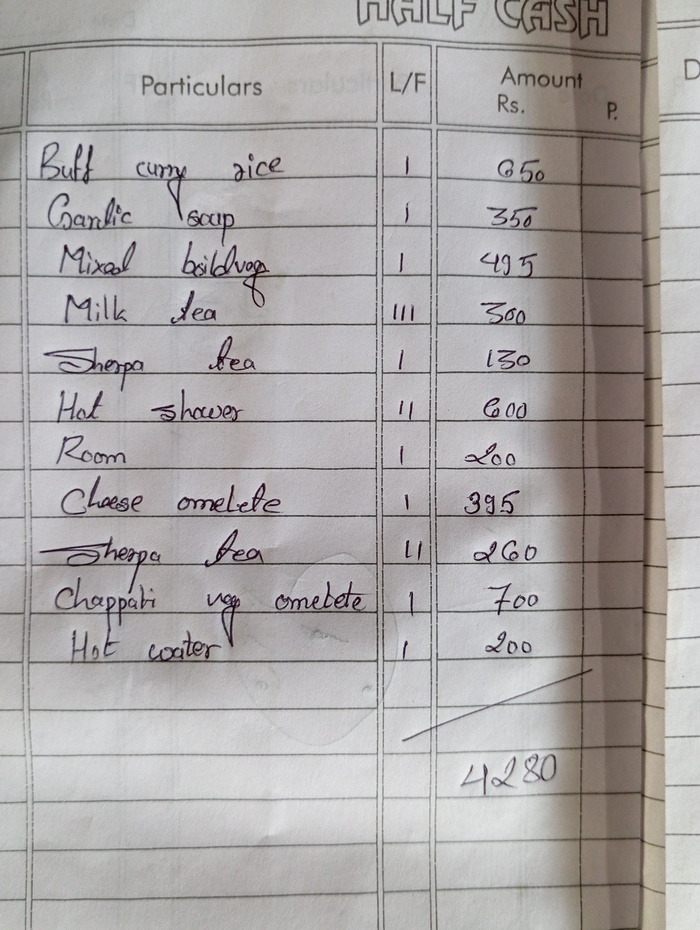 HALF CASH
Particulars L/F Amount Rs. P. D
Buff curry rice I 650
Garlic soup I 350
Mixed boildveg I 495
Milk tea III 300
Sherpa tea I 130
Hot shower II 600
Room I 200
Cheese omelete I 395
Sherpa tea II 260
Chappati veg omelete I 700
Hot water I 200
4280